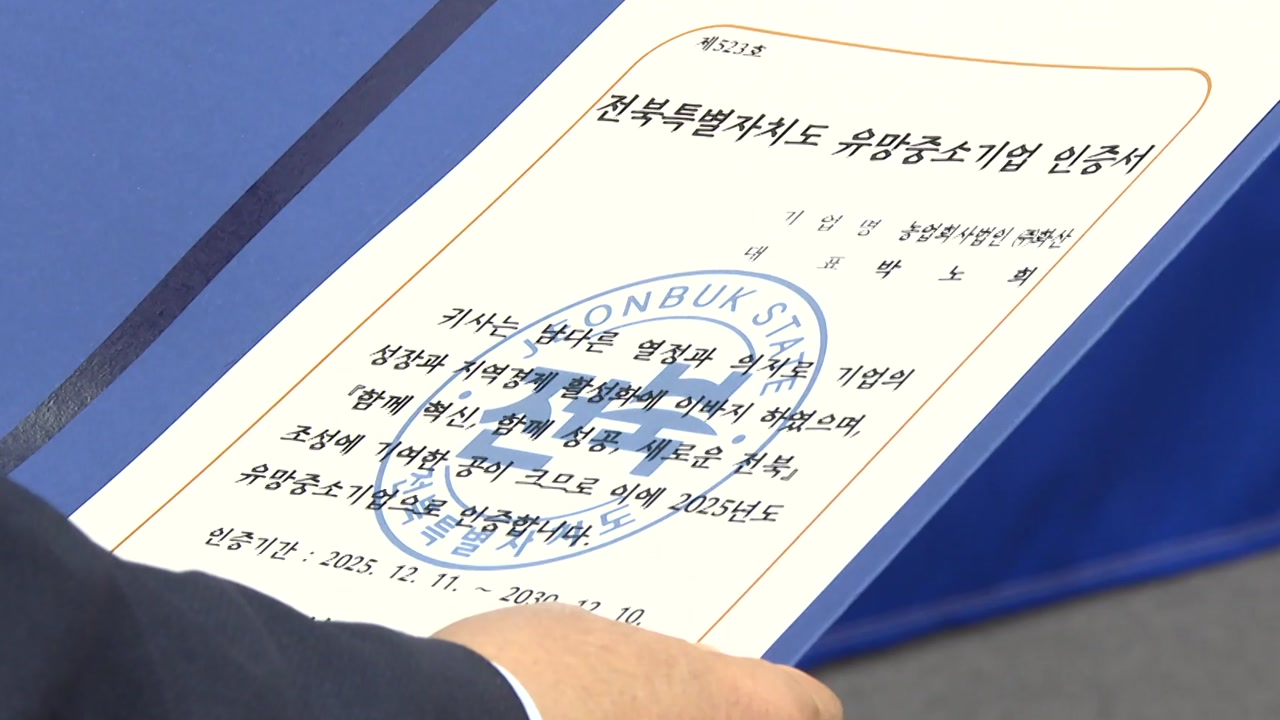 제523호
전북특별자치도 유망중소기업 인증서
기 업 명 농업회사법인 ㈜화산
대 표 박 노 희
키사는 남다른 열정과 의지로 기업의
성장과 지역경제 활성화에 이바지 하였으며,
『함께 혁신, 함께 성공, 새로운 전북』
조성에 기여한 공이 크므로 이에 2025년도
유망중소기업으로 인증합니다.
인증기간 : 2025. 12. 11. ~ 2030. 12. 10.
JEONBUK STATE
전북
전북특별자치도